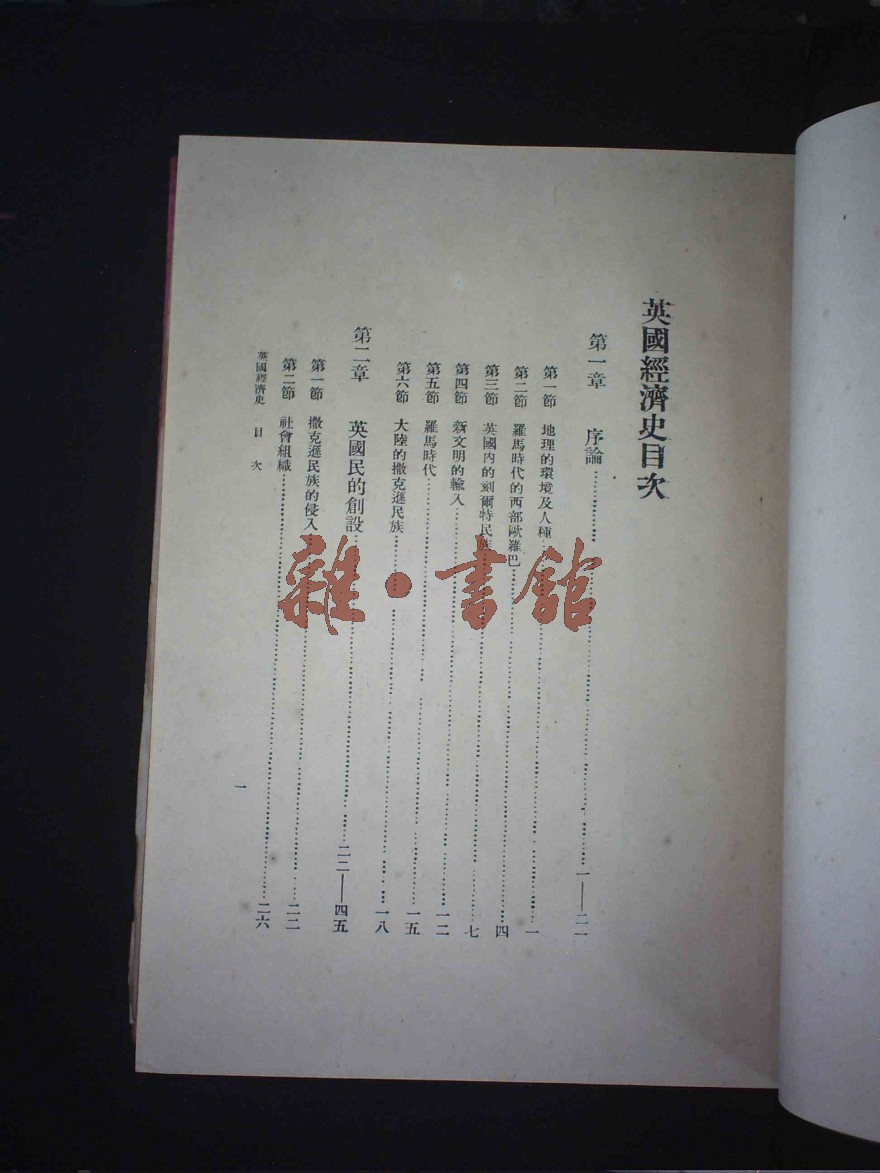 英國經濟史目次
第一章 序論……一——二一
第一節 地理的環境及人種……一
第二節 羅馬時代的西部歐羅巴……四
第三節 英國内的刻爾特民族……七
第四節 新文明的輸入……一二
第五節 羅馬時代……一五
第六節 大陸的撒克遜民族……一八
第二章 英國民的創設……二二——四五
第一節 撒克遜民族的侵入……二二
第二節 社會組織……二六
英國經濟史 目次
一
雜·書館